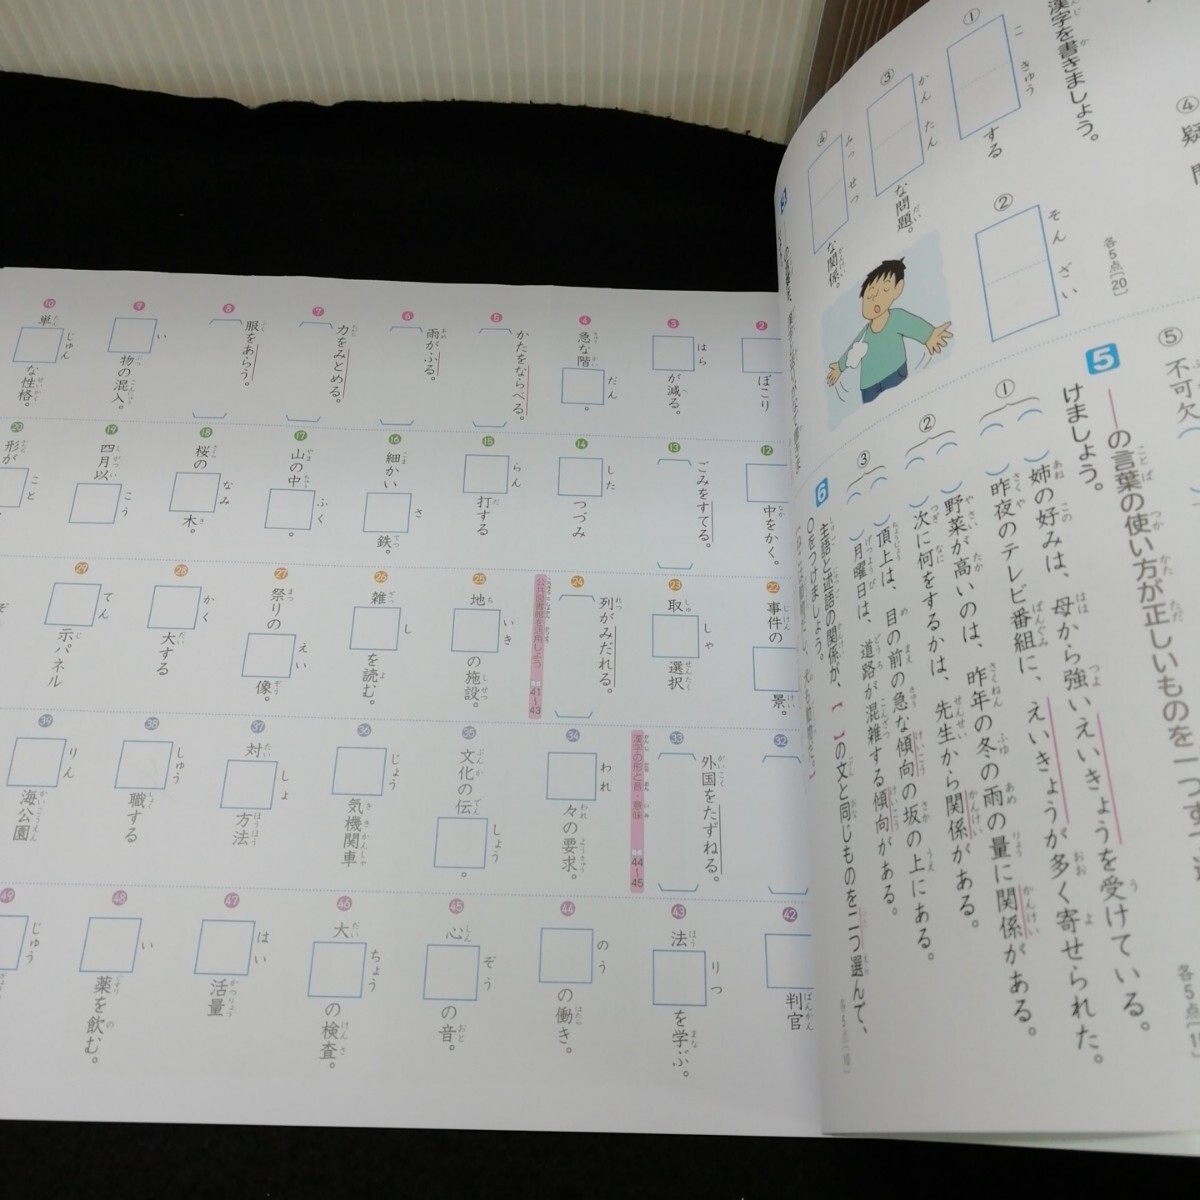 漢字を書きましょう。
① こきゅう する
② そんざい
各5点〔20〕
③ かんたん な問題。
④ みっせつ な関係。
④ 疑
⑤ 不可欠
5 ――の言葉の使い方が正しいものを一つず
けましょう。
① ( )姉の好みは、母から強いえいきょうを受けている。
( )昨夜のテレビ番組に、えいきょうが多く寄せられた。
② ( )野菜が高いのは、昨年の冬の雨の量に関係がある。
( )次に何をするかは、先生から関係がある。
③ ( )頂上は、目の前の急な傾向の坂の上にある。
( )月曜日は、道路が混雑する傾向がある。
各5点〔1
6 主語と述語の関係が、【 】の文と同じものを二つ選んで、
○をつけましょう。
2 ぼこり
3 はら が減る。
4 急な階 だん 。
5 かたをならべる。
6 雨がふる。
7 力をみとめる。
8 服をあらう。
9 い 物の混入。
10 単 じゅん な性格。
12 中をかく。
13 ごみをすてる。
14 した つづみ
15 らん 打する
16 細かい さ 鉄。
17 山の中 ふく 。
18 桜の なみ 木。
19 四月以 こう
20 形が こと
22 事件の 景。
23 取 しゃ 選択
24 列がみだれる。
公共図書館を活用しよう 41〜43
25 地 いき の施設。
26 雑 し を読む。
27 祭りの えい 像。
28 かく 大する
29 てん 示パネル
32
33 外国をたずねる。
漢字の形と音・意味 44〜45
34 われ 々の要求。
35 文化の伝 しょう 。
36 じょう 気機関車
37 対 しょ 方法
38 しゅう 職する
39 りん 海公園
42 判官
43 法 りつ を学ぶ。
44 のう の働き。
45 心 ぞう の音。
46 大 ちょう の検査。
47 はい 活量
48 い 薬を飲む。
49 じゅう